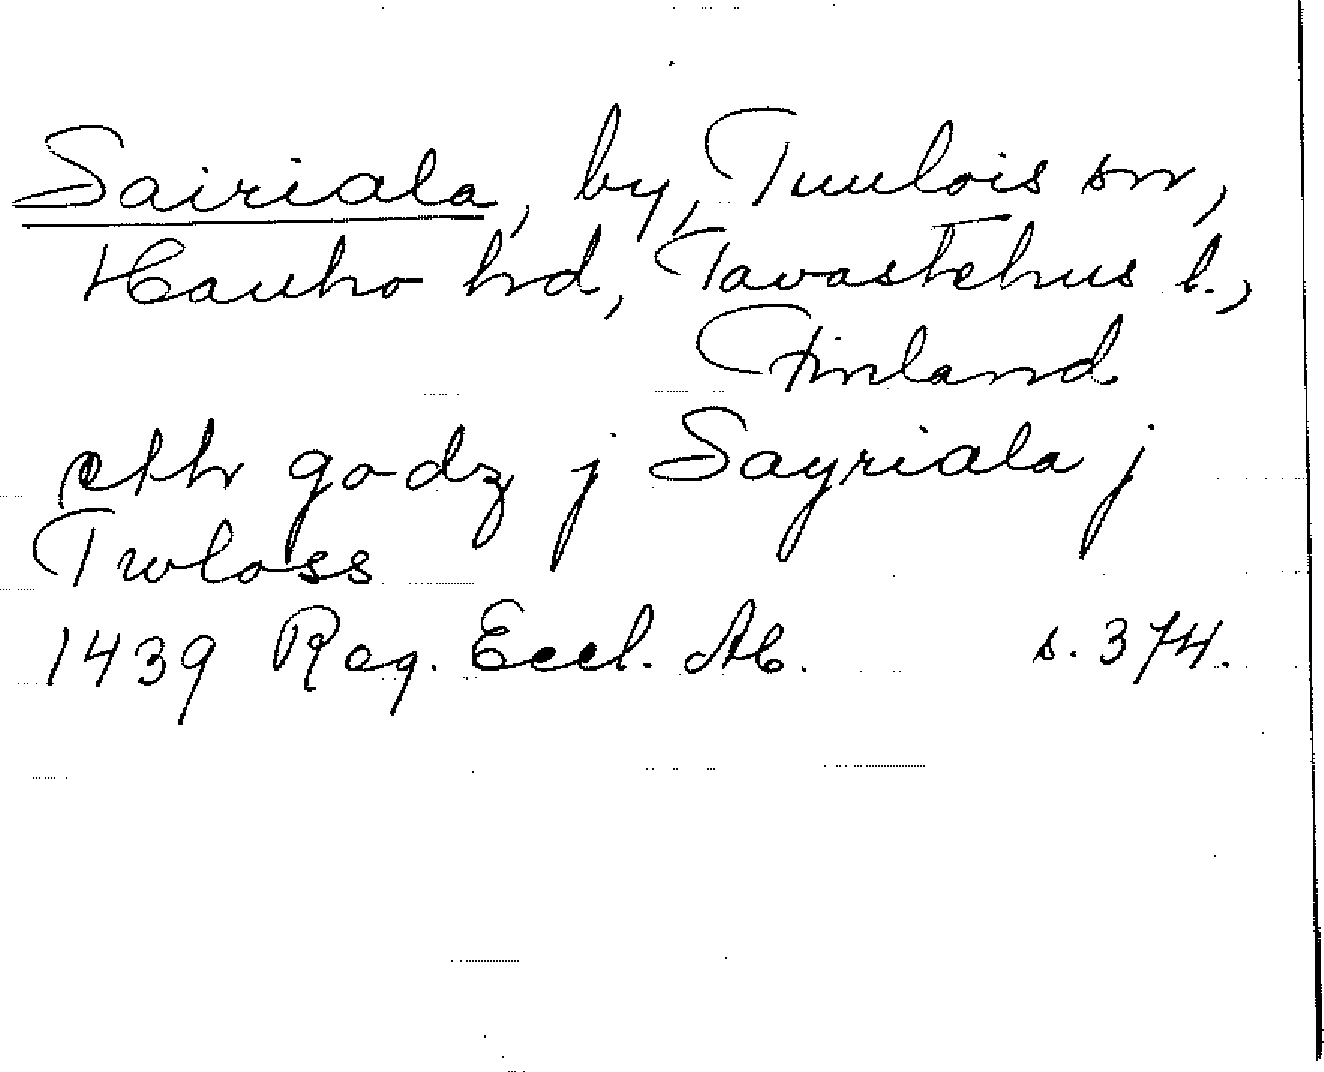 Sairiala, by, Tuulois sn,
Hauho hd, Tavastehus l.,
Finland
eth godz j Sayriala j
Twloss
1439 Reg. Eccl. Ab. s. 374.